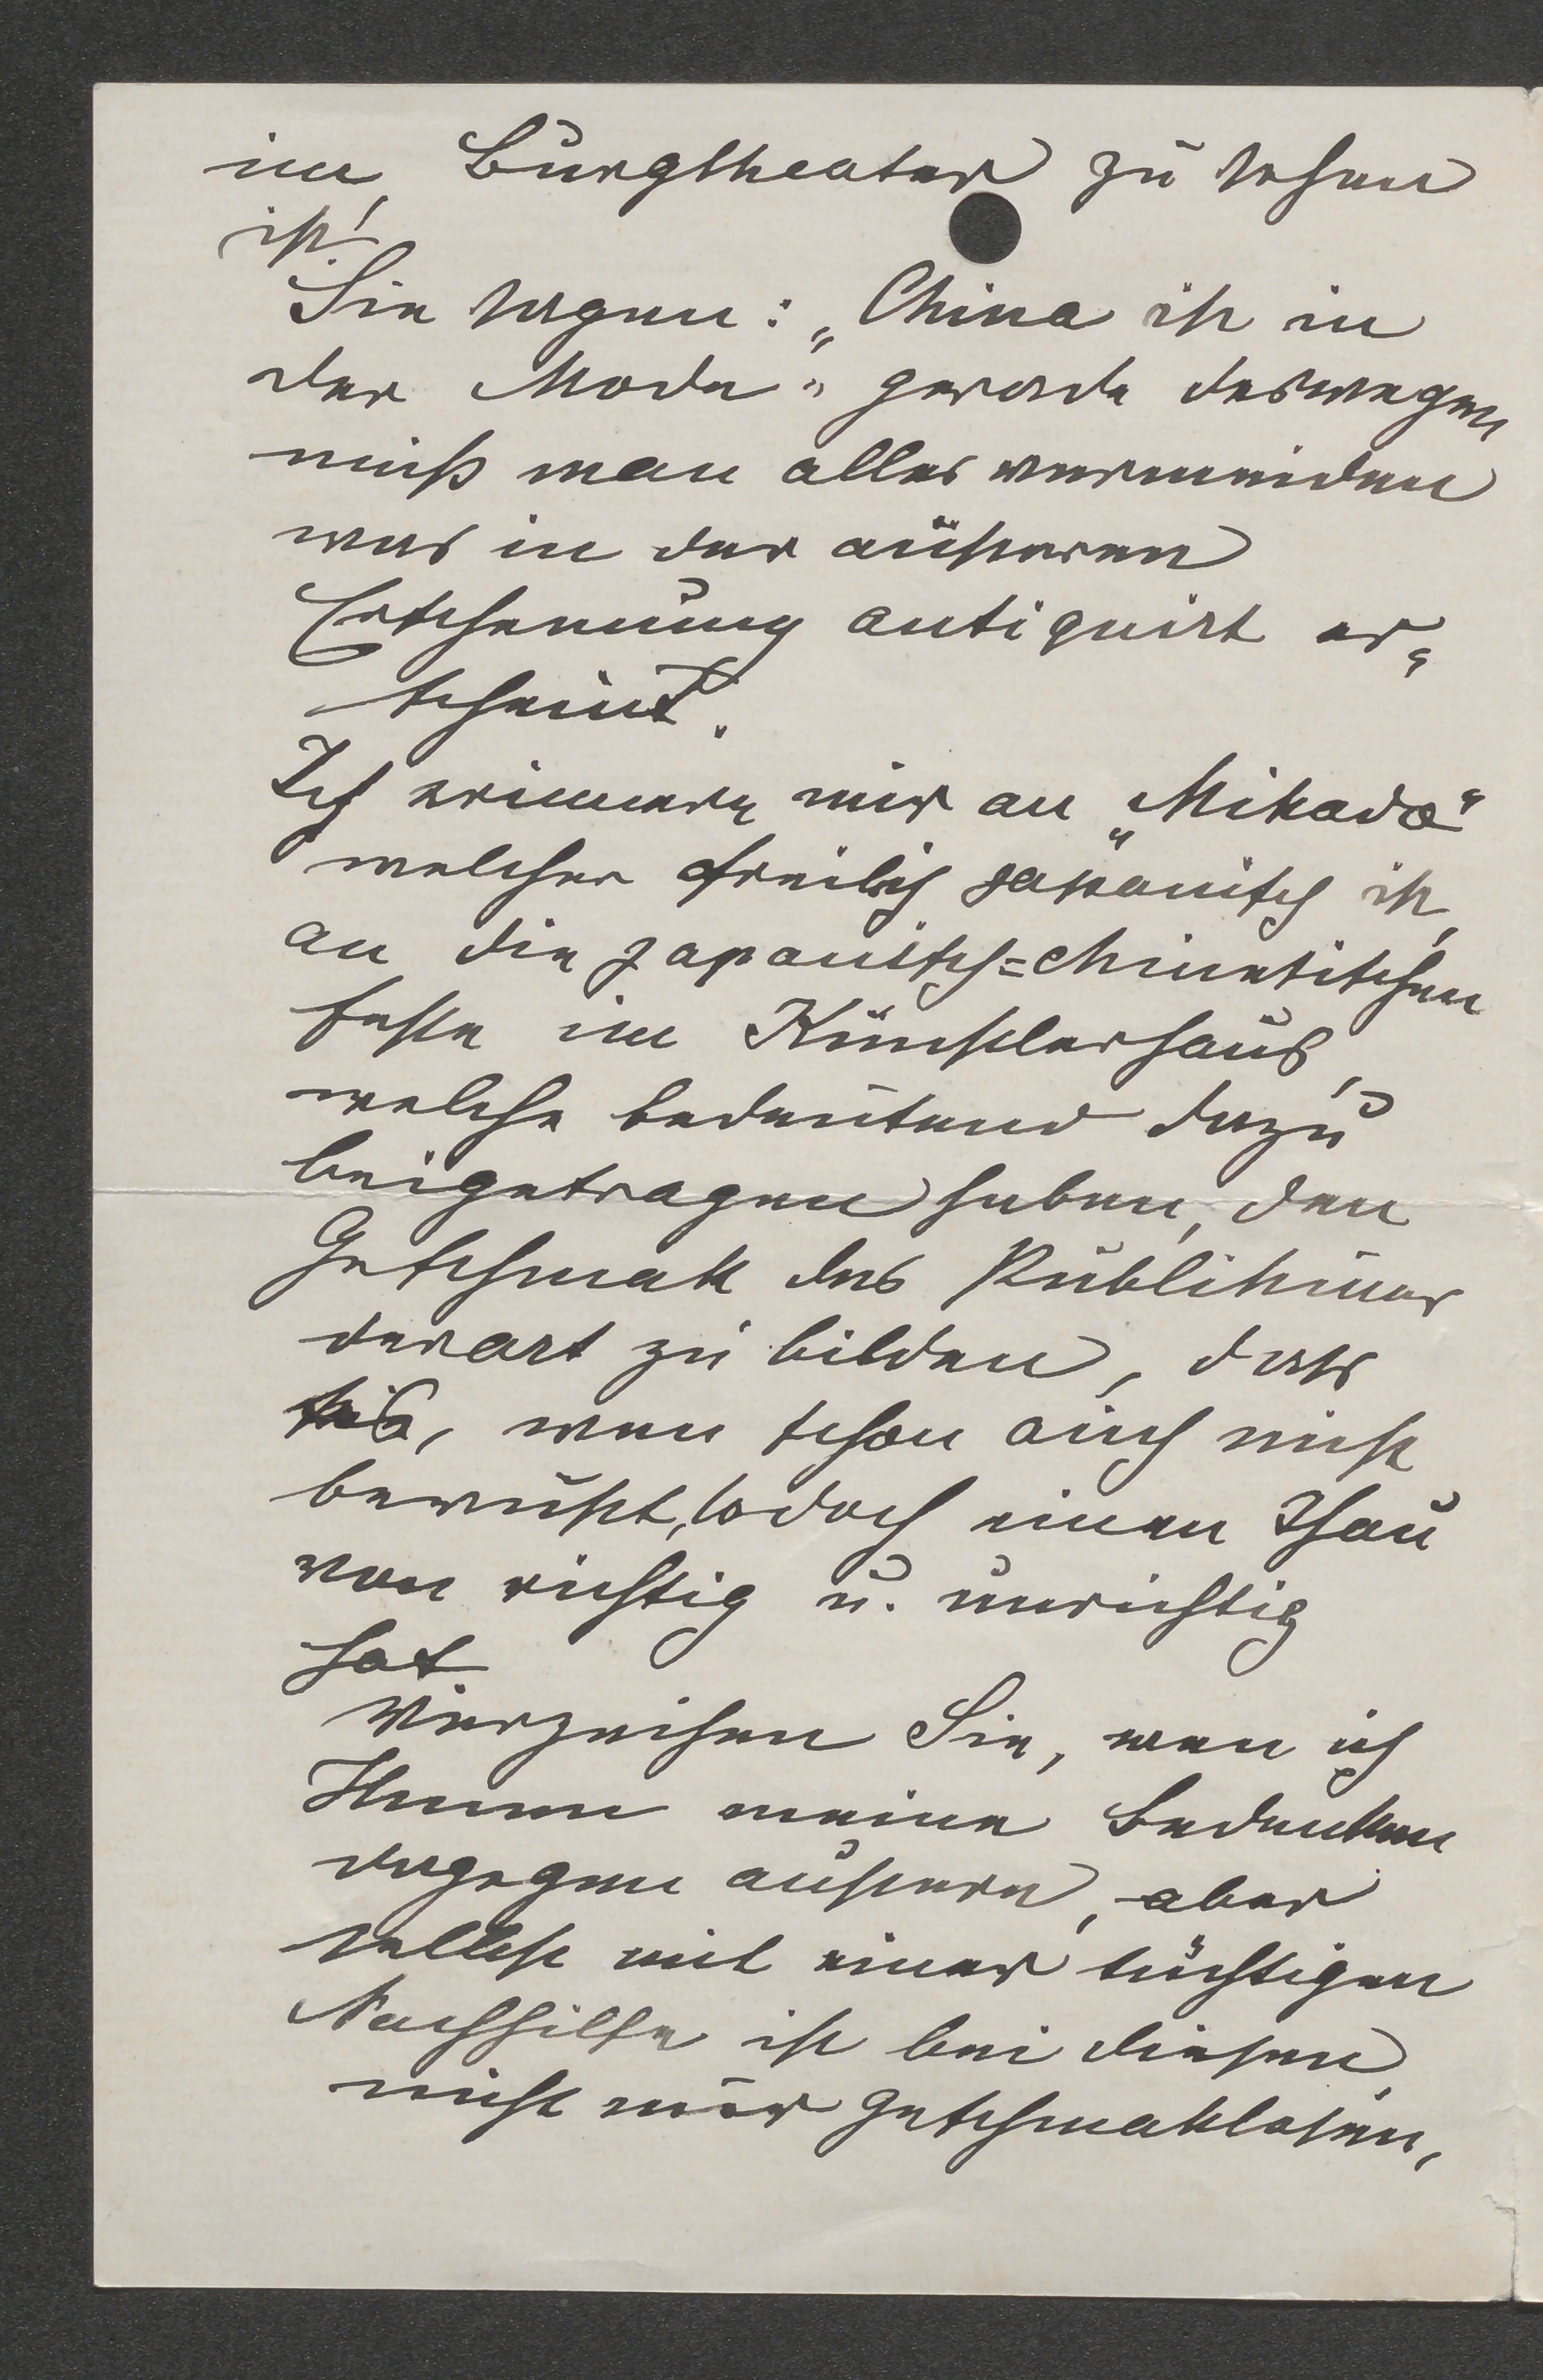 im Burgtheater zu sehen
ist!
Sie sagen: „China ist in
der Mode" gerade deswegen
muß man alles vermeiden
was in der äußeren
Erscheinung antiquirt er=
scheint.
Ich erinnere mir an „Mikado"
welcher freilich japanisch ist,
an die japanisch=chinesischen
Feste im Künstlerhaus,
welche bedeutend dazu
beigetragen haben, den
Geschmak des Publikums
derart zu bilden, dass
, wen schon auch nicht
bewußt, so doch einen
von richtig u. unrichtig
hat
Verzeihen Sie, wen ich
Ihnen meine Bedenken
dagegen äußere, aber
selbst mit einer tüchtigen
Nachhilfe ist bei diesen
nicht nur Geschmaklosen,